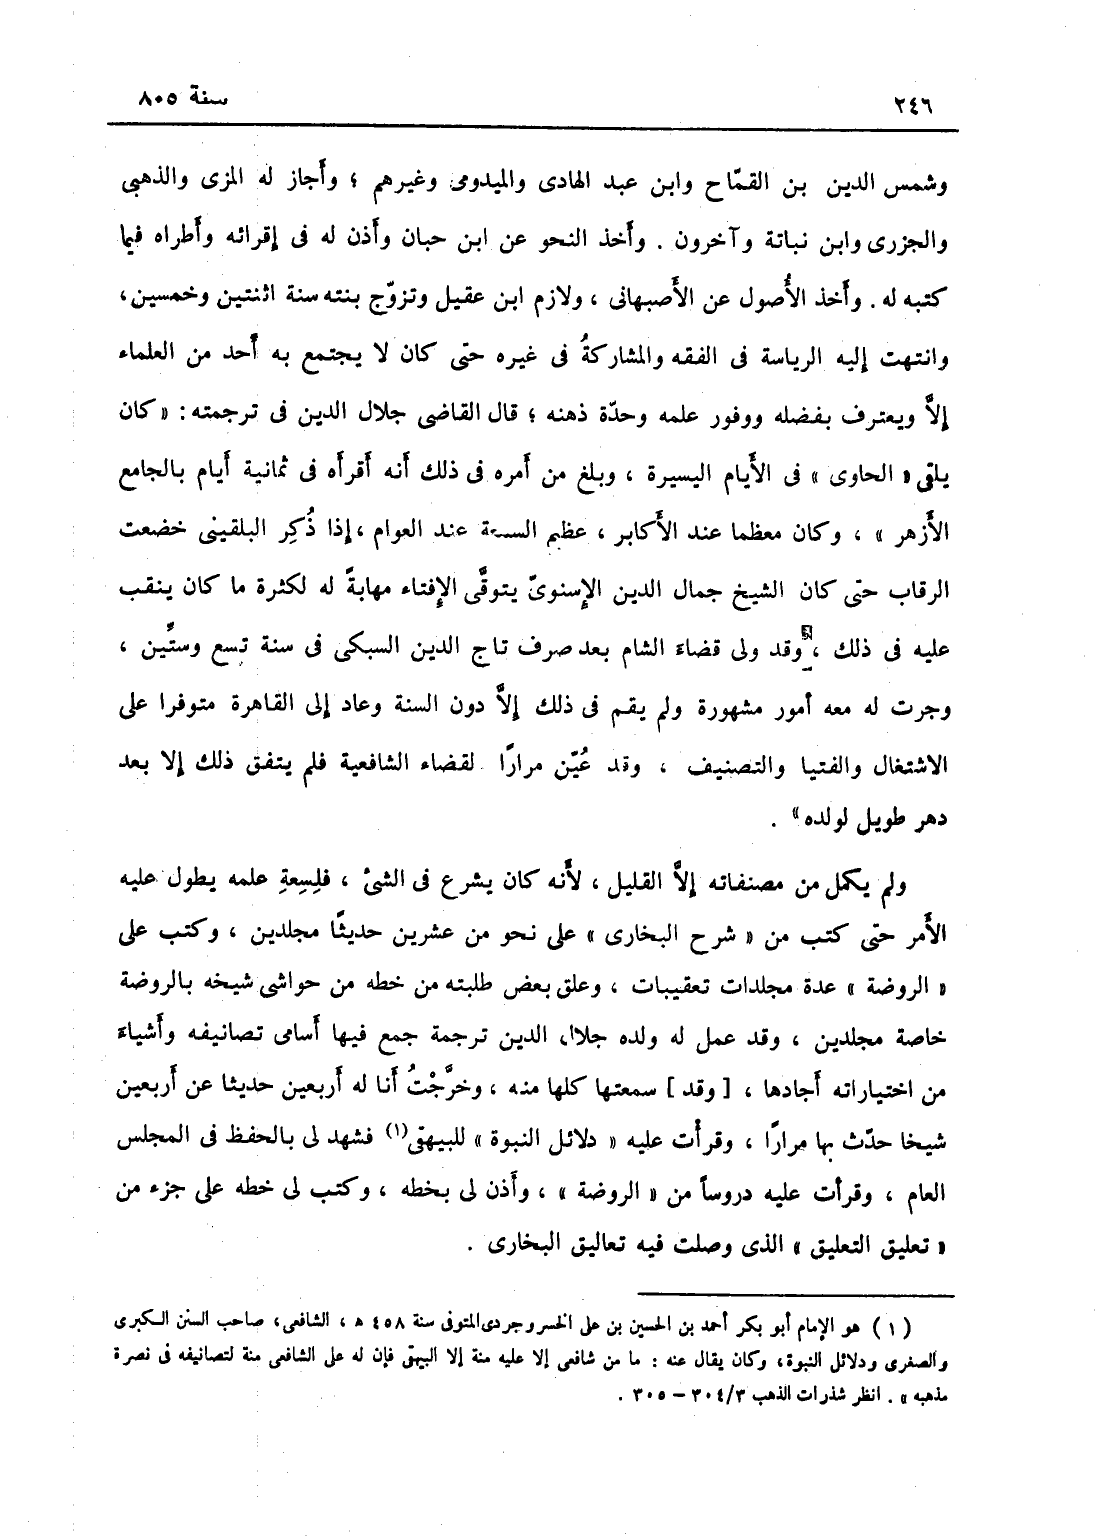 ٢٤٦
سنة ٨٠٥
وشمس الدين بن القمّاح وابن عبد الهادى والميدومى وغيرهم ؛ وأَجاز له المزى والذهبى
والجزرى وابن نباتة وآخرون . وأَخذ النحو عن ابن حبان وأَذن له فى إقرائه وأَطراه فيما
كتبه له . وأَخذ الأُصول عن الأَصبهانى ، ولازم ابن عقيل وتزوّج بنته سنة اثنتين وخمسين ،
وانتهت إليه الرياسة فى الفقه والمشاركةُ فى غيره حتى كان لا يجتمع به أَحد من العلماء
إلاَّ ويعترف بفضله ووفور علمه وحدّة ذهنه ؛ قال القاضى جلال الدين فى ترجمته : « كان
يلقى « الحاوى » فى الأَيام اليسيرة ، وبلغ من أَمره فى ذلك أَنه أَقرأَه فى ثمانية أَيام بالجامع
الأَزهر » ، وكان معظما عند الأَكابر ، عظيم السمعة عند العوام ، إذا ذُكِر البلقينى خضعت
الرقاب حتى كان الشيخ جمال الدين الإسنوىّ يتوقَّى الإفتاء مهابةً له لكثرة ما كان ينقب
عليه فى ذلك ، وقد ولى قضاءَ الشام بعد صرف تاج الدين السبكى فى سنة تسع وستِّين ،
وجرت له معه أمور مشهورة ولم يقم فى ذلك إلاَّ دون السنة وعاد إلى القاهرة متوفرا على
الاشتغال والفتيا والتصنيف ، وقد عُيّن مرارًا لقضاء الشافعية فلم يتفق ذلك إلا بعد
دهر طويل لولده » .
ولم يكمل من مصنفاته إلاَّ القليل ، لأَنه كان يشرع فى الشئ ، فلِسِعةِ علمه يطول عليه
الأَمر حتى كتب من « شرح البخارى » على نحو من عشرين حديثًا مجلدين ، وكتب على
« الروضة » عدة مجلدات تعقيبات ، وعلق بعض طلبته من خطه من حواشى شيخه بالروضة
خاصة مجلدين ، وقد عمل له ولده جلال الدين ترجمة جمع فيها أَسامى تصانيفه وأَشياءَ
من اختياراته أَجادها ، [ وقد ] سمعتها كلها منه ، وخرَّجْتُ أَنا له أَربعين حديثا عن أَربعين
شيخا حدّث بها مرارًا ، وقرأْت عليه « دلائل النبوة » للبيهقى(١) فشهد لى بالحفظ فى المجلس
العام ، وقرأت عليه دروساً من « الروضة » ، وأَذن لى بخطه ، وكتب لى خطه على جزء من
« تعليق التعليق » الذى وصلت فيه تعاليق البخارى .
( ١ ) هو الإمام أبو بكر أحمد بن الحسين بن على الخسروجردى المتوفى سنة ٤٥٨ ه ، الشافعى، صاحب السنن الكبرى
والصغرى ودلائل النبوة، وكان يقال عنه : ما من شافعى إلا عليه منة إلا البيهقى فإن له على الشافعى منة لتصانيفه فى نصرة
مذهبه » . انظر شذرات الذهب ٣٠٤/٣ – ٣٠٥ .